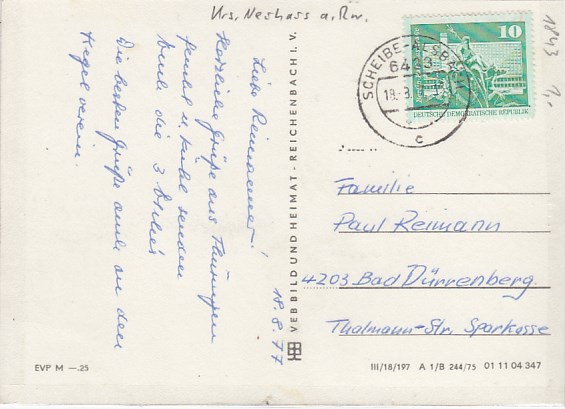 Krs. Neuhaus a. Rw.
1843
1,-
10
DEUTSCHE DEMOKRATISCHE REPUBLIK
SCHEIBE-ALSBACH
6433
18.-8.
c
18. 8. 77
Liebe Reimänner!
Herzliche Grüße aus Thüringen
sendet u. 
Euch die 3
Die besten Grüße auch an den
Kegelverein.
VEB BILD UND HEIMAT - REICHENBACH i. V.
Familie
Paul Reimann
4203 Bad Dürrenberg
Thälmann-Str. Sparkasse
EVP M —.25
III/18/197 A 1/B 244/75 01 11 04 347